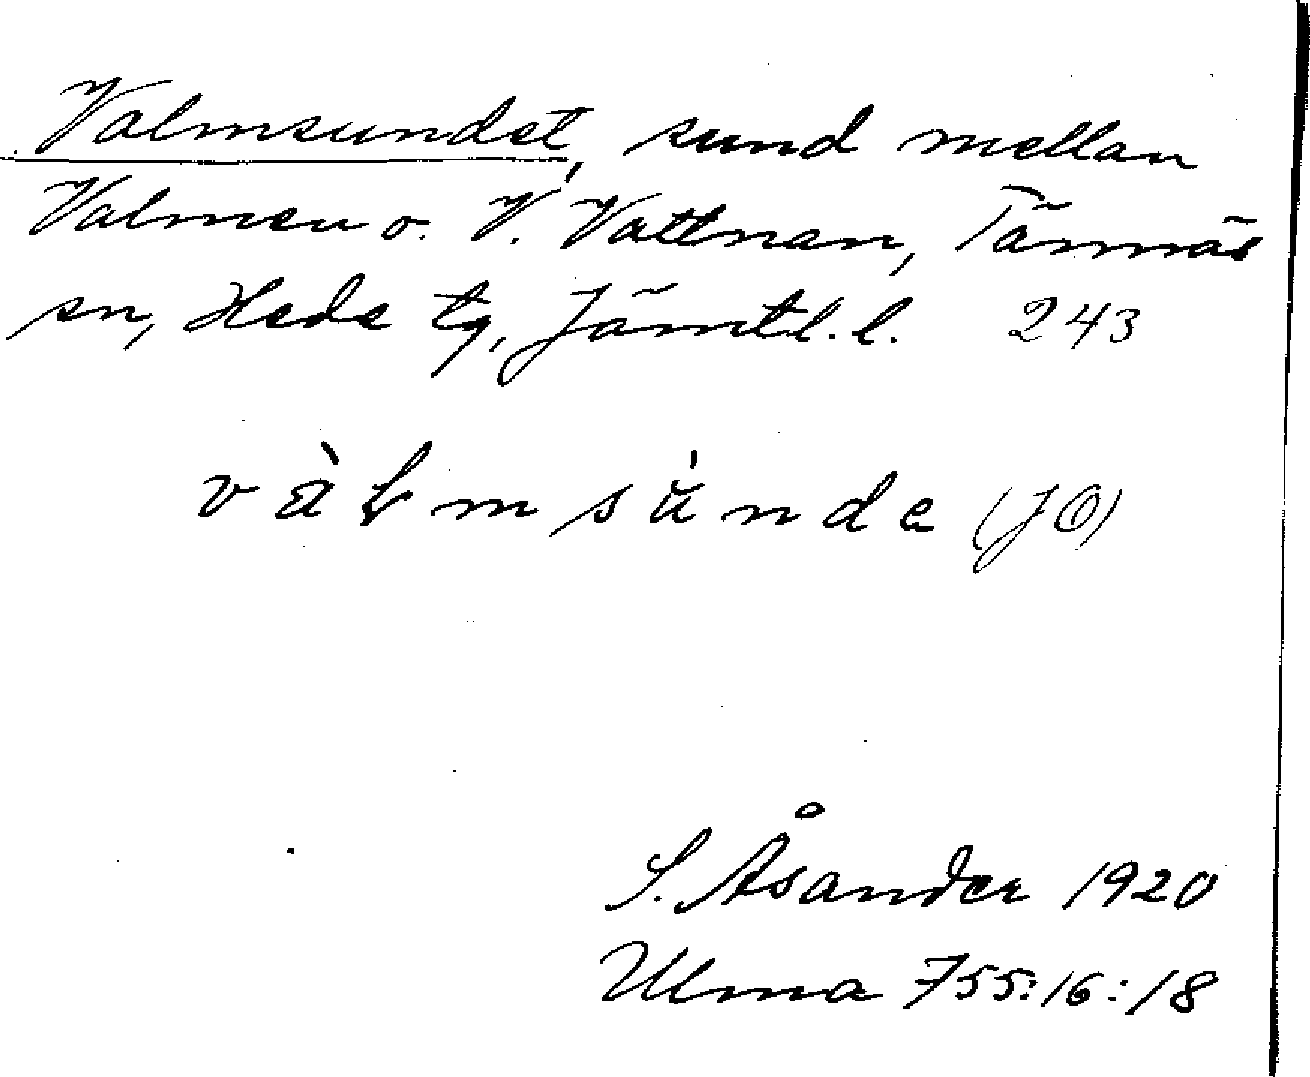 Valmsundet, sund mellan
Valmen o. V. Vattnan, Tännäs
sn, Hede tg, Jämtl. l. 243
vàƚmsúnde (JO)
S. Åsander 1920
Ulma 755:16:18